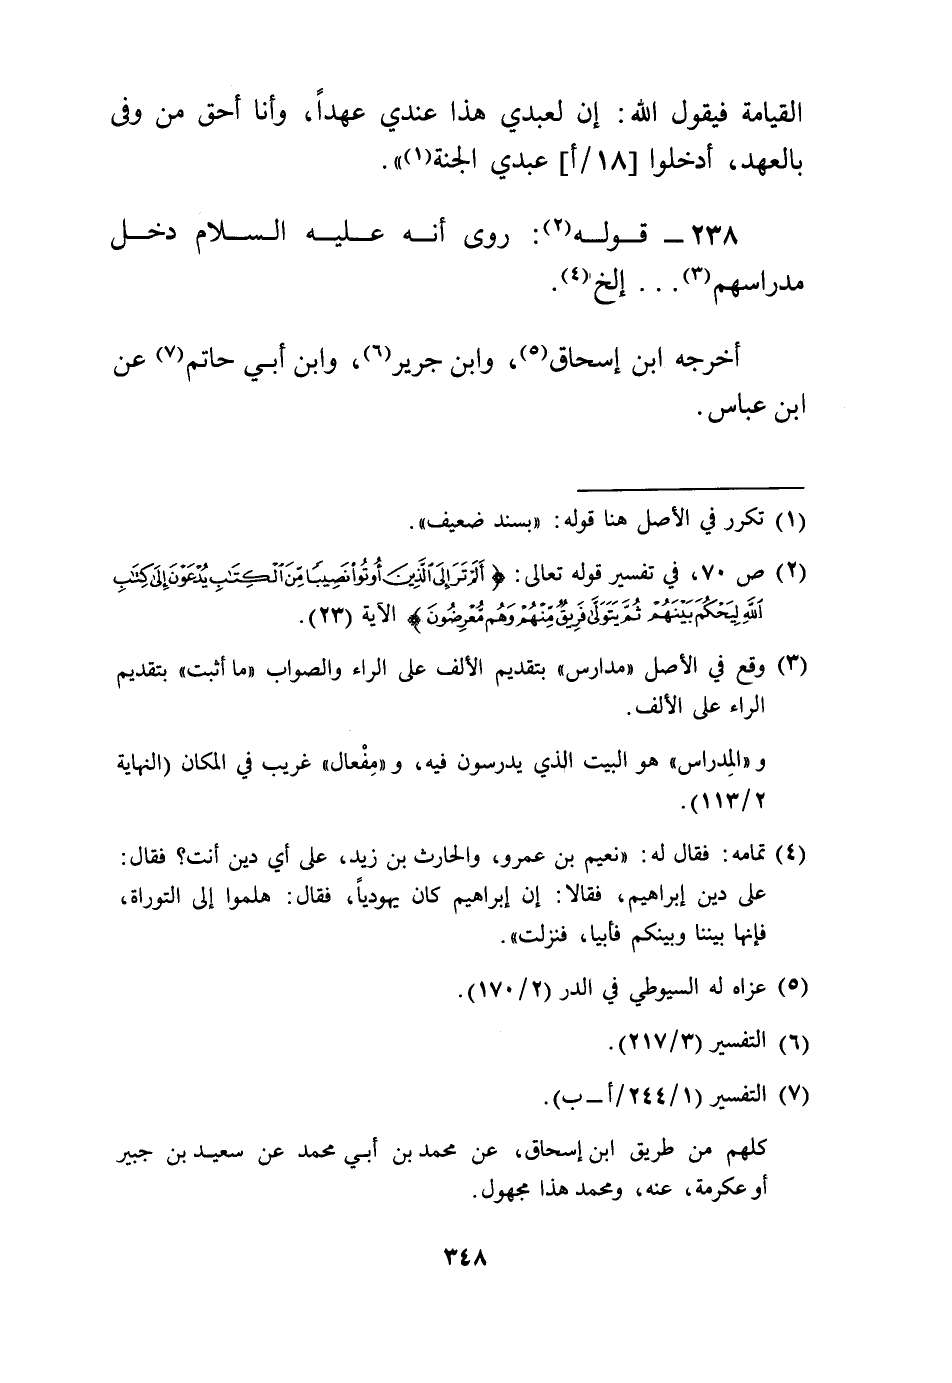 القيامة فيقول الله: إن لعبدي هذا عندي عهداً، وأنا أحق من وفى
بالعهد، أدخلوا [١٨/أ] عبدي الجنة(١)».
٢٣٨ – قوله(٢): روى أنه عليه السلام دخل
مدراسهم(٣)... إلخ(٤).
أخرجه ابن إسحاق(٥)، وابن جرير(٦)، وابن أبي حاتم(٧) عن
ابن عباس.
(١) تكرر في الأصل هنا قوله: «بسند ضعيف».
(٢) ص ٧٠، في تفسير قوله تعالى: ﴿أَلَمْ تَرَ إِلَى ٱلَّذِينَ أُوتُوا۟ نَصِيبًا مِّنَ ٱلْكِتَٰبِ يُدْعَوْنَ إِلَىٰ كِتَٰبِ
ٱللَّهِ لِيَحْكُمَ بَيْنَهُمْ ثُمَّ يَتَوَلَّىٰ فَرِيقٌ مِّنْهُمْ وَهُم مُّعْرِضُونَ﴾ الآية (٢٣).
(٣) وقع في الأصل «مدارس» بتقديم الألف على الراء والصواب «ما أثبت» بتقديم
الراء على الألف.
و «المِدراس» هو البيت الذي يدرسون فيه، و «مِفْعال» غريب في المكان (النهاية
٢/١١٣).
(٤) تمامه: فقال له: «نعيم بن عمرو، والحارث بن زيد، على أي دين أنت؟ فقال:
على دين إبراهيم، فقالا: إن إبراهيم كان يهودياً، فقال: هلموا إلى التوراة،
فإنها بيننا وبينكم فأبيا، فنزلت».
(٥) عزاه له السيوطي في الدر (٢/١٧٠).
(٦) التفسير (٣/٢١٧).
(٧) التفسير (١/٢٤٤/أ – ب).
كلهم من طريق ابن إسحاق، عن محمد بن أبي محمد عن سعيد بن جبير
أو عكرمة، عنه، ومحمد هذا مجهول.
٣٤٨